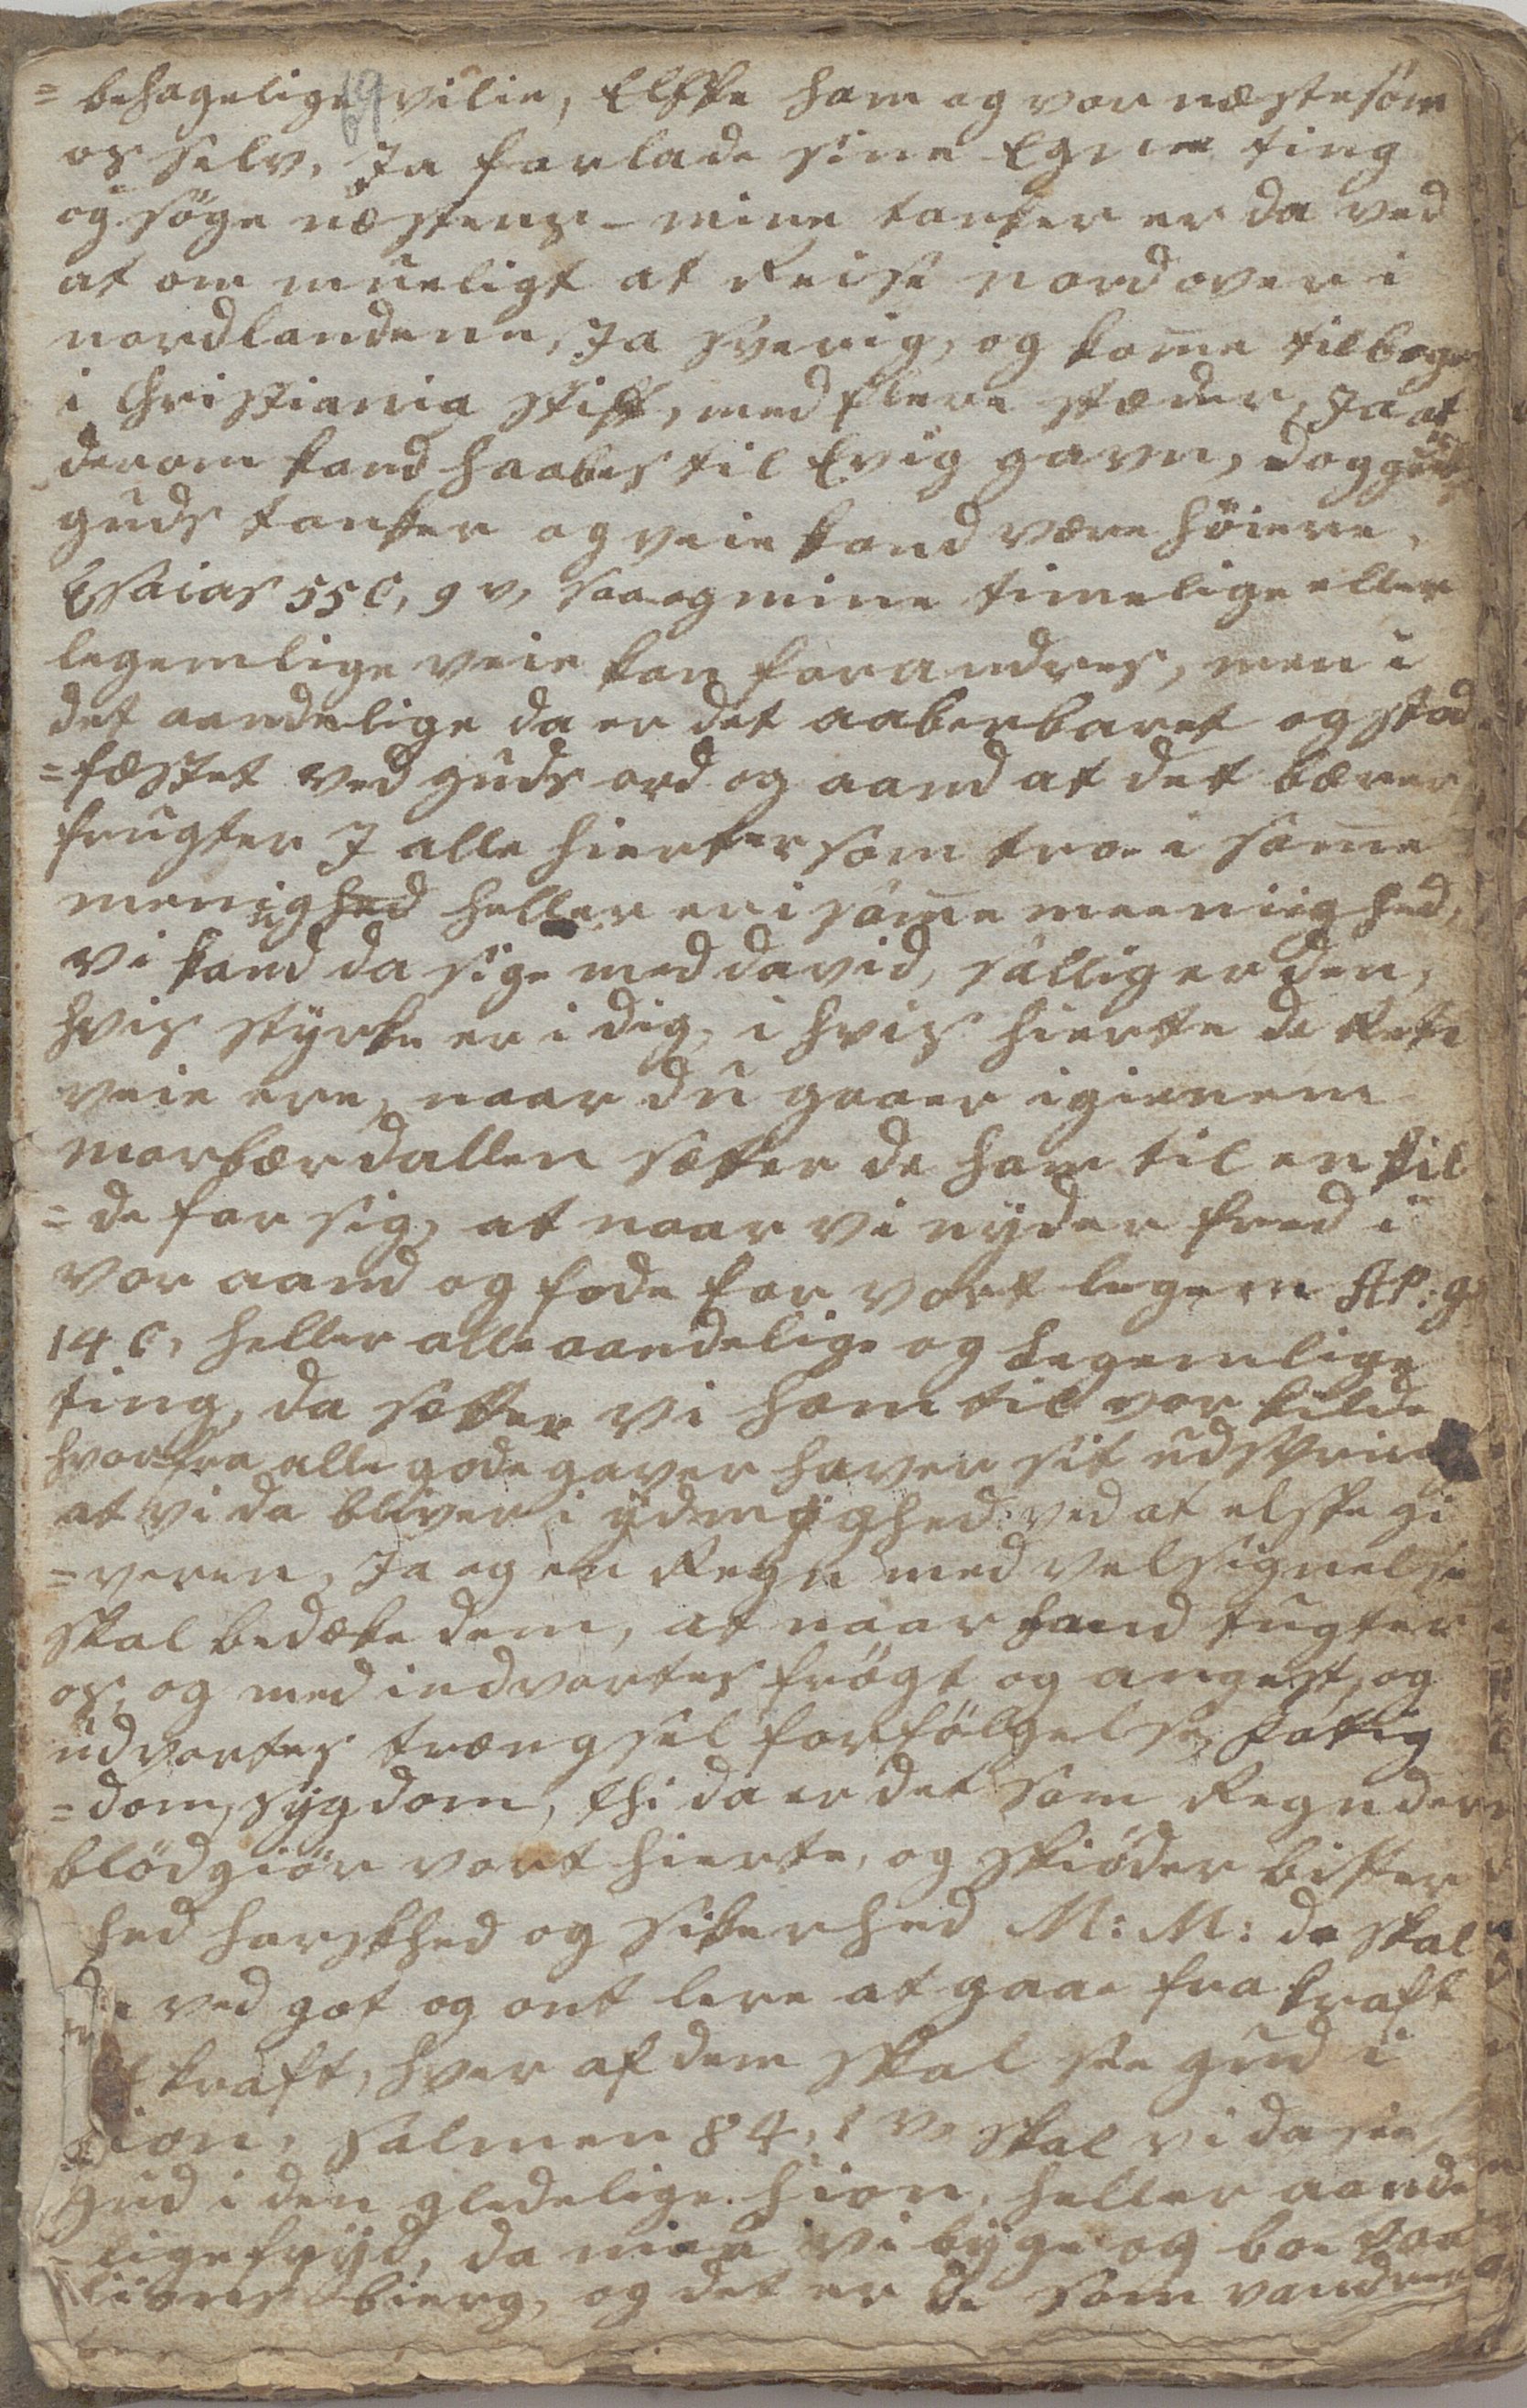 = behagelige vilie, Elske ham og vor næste som
os selv, Ja forlade sine Egne ting
og söge næstens - mine tanker er da ved
at om mueligt at Reise nord over i
nordlandene, Ja sverig, og kome tilbage
i Christiania stift, med flere stæder, Ja at
derom kand haabes til Evig gavn, dog
guds tanker og veie kand være höiere,
Esaias 55 C, 9 v, saa og mine timelige eller
legemlige veie kan forandres, men i
det aandelige da er det aabenbaret og stad
= fæstet ved guds ord og aand at det bærer
frugter I alle hierter som troe i same
menighed heller er i same meeniighed,
vi kand da sige med david, sallig er den,
hvis styrke er i dig, i hvis hierte de Rette
veie ere, naar du gaaer igienem
morbærdallen sætter de ham til en kil
= de for sig, at naar vi nyder fred i
vor aand og føde for vort legem AP: g
14 C, heller alle aandelige og legemlige
ting, da sætter vi ham til vor kilde
hvorfra alle gode gaver haver sit udspring
at vi da bliver i ydmyghed ved at elske gi
= veren, Ja og en Regn med velsignelse
skal bedæke dem, at naar hand tugter
os, og med indvortes frögt og angest, og
udvortes trængsel forfölgelse, fatig
= dom, sygdom, thi da er det som Regn der
blödgiör vort hierte, og skiöder bitter
hed harskhed og sikerhed M: M: da skal
de ved got og ont lere at gaae fra kraft
til kraft, hver af dem skal see gud i
Zion, salmen 84, v, skal vi da see
gud i den gledelige hion, heller aande
= lige fryd, da maa vi byge og boe paa
Zions bierg, og det er de som vandrer